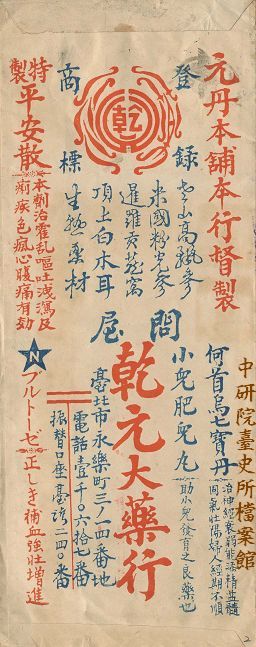 元丹本舖本行督製
登錄
商標
乾
老山高麗參
米國粉光參
暹羅貢燕窩
頂上白木耳
生熟藥材
特製
平安散
本劑治霍亂嘔吐洩瀉及
痢疾色痧心腹痛有効
問屋
何首烏七寶丹
治神經衰弱能添精益髓
固氣壯陽婦人經期不順
小兒肥兒丸
助小兒發育之良藥也
乾元大藥行
臺北市永樂町三ノ一四番地
電話壹千〇六拾七番
振替口座臺灣二四〇番
N
ブルトーゼ
正しき補血強壯增進
中研院臺史所檔案館